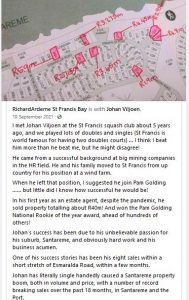 AREME
RichardArderne St Francis Bay is with Johan Viljoen.
10 September 2021
I met Johan Viljoen at the St Francis squash club about 5 years
ago, and we played lots of doubles and singles (St Francis is
world famous for having two doubles courts) ... I think I beat
him more than he beat me, but he might disagree!
He came from a successful background at big mining companies
in the HR field. He and his family moved to St Francis from up
country for his position at a wind farm.
When he left that position, I suggested he join Pam Golding
....... but little did I know how successful he would be!
In his first year as an estate agent, despite the pandemic, he
sold property totalling about R40m! And won the Pam Golding
National Rookie of the year award, ahead of hundreds of
others!
Johan's success has been due to his unbelievable passion for
his suburb, Santareme, and obviously hard work and his
business acumen.
One of his success stories has been his eight sales within a
short stretch of Esmeralda Road, within a few months.
Johan has literally single handedly caused a Santareme property
boom, both in volume and price, with a number of record
breaking sales over the past 18 months, in Santareme and the
Port.